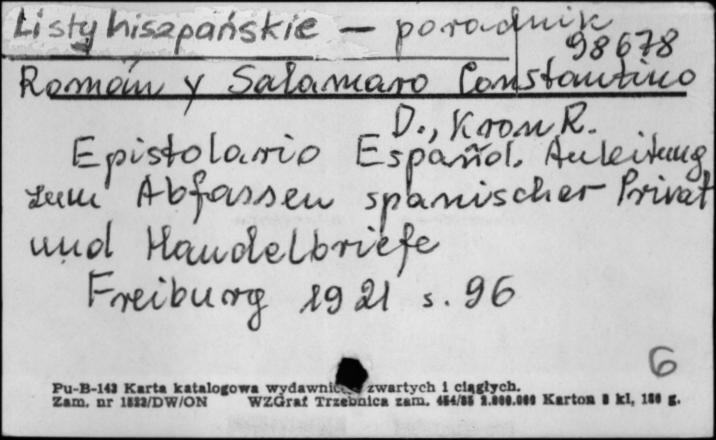 Listy hiszpańskie — poradnik
98678
Román y Salamaro Constantino
D., Kron R.
Epistolario Español. Anleitung
zum Abfassen spanischer Privat
und Handelbriefe
Freiburg 1921 s. 96
6
Pu-B-143 Karta katalogowa wydawnictw zwartych i ciągłych.
Zam. nr 1522/DW/ON WZGraf Trzebnica zam. 454/85 2.000.000 Karton 3 kl, 180 g.